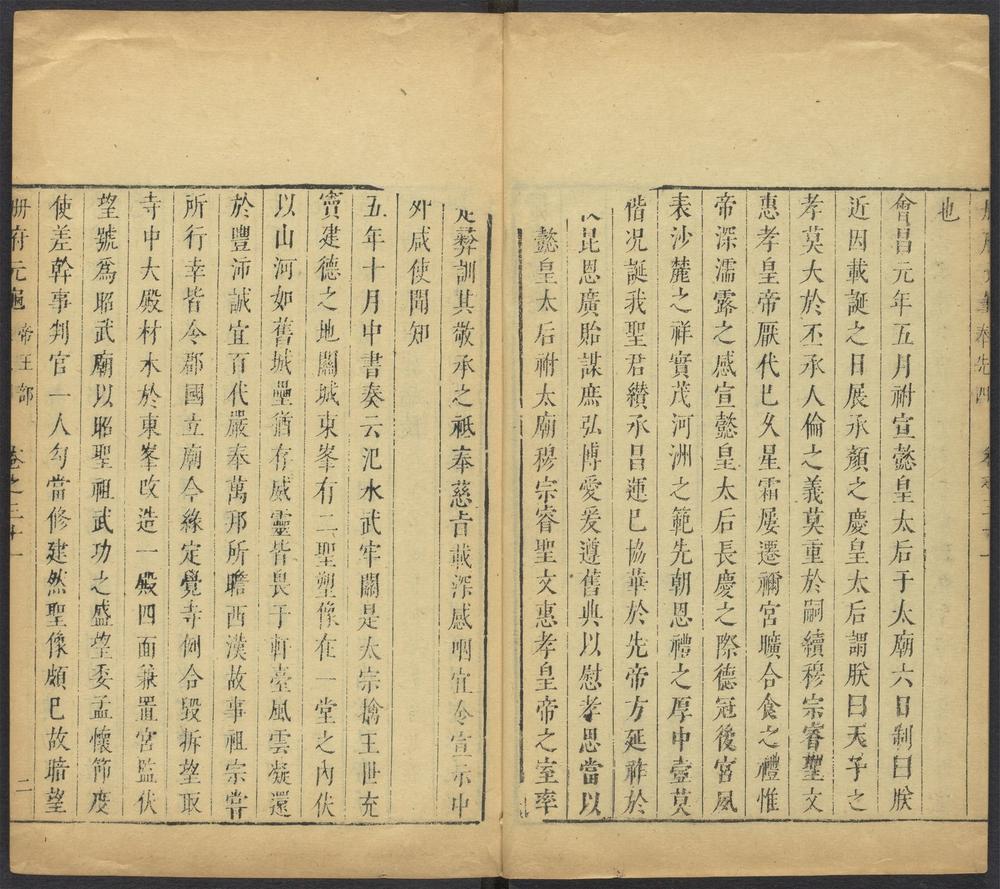 也
會昌元年五月祔宣懿皇太后于太廟六日制曰朕
近因載誕之日展承顏之慶皇太后謂朕曰天子之
孝莫大於丕承人倫之義莫重於嗣續穆宗睿聖文
惠孝皇帝厭代已久星霜屢遷禰宮曠合食之禮惟
帝深濡露之感宣懿皇太后長慶之際德冠後宮夙
表沙麓之祥實茂河洲之範先朝恩禮之厚中壼莫
偕况誕我聖君纘承昌運已協華於先帝方延祚於
昆思廣貽謀庶弘博愛爰遵舊典以慰孝思當以
懿皇太后祔太廟穆宗睿聖文惠孝皇帝之室率
彝訓其敬承之祗奉慈旨載深感咽宜令宣示中
外咸使聞知
五年十月中書奏云汜水武牢關是太宗擒王世充
竇建德之地關城東峯有二聖塑像在一堂之內伏
以山河如舊城壘猶存威靈皆畏于軒臺風雲疑還
於豐沛誠宜百代嚴奉萬邦所瞻西漢故事祖宗嘗
所行幸皆令郡國立廟今緣定覺寺例合毀拆望取
寺中大殿材木於東峯改造一殿四面兼置宮監伏
望號爲昭武廟以昭聖祖武功之盛望委孟懷節度
使差幹事判官一人勾當修建然聖像頗已故暗望
册府元龜 帝王部 卷之三十一 二